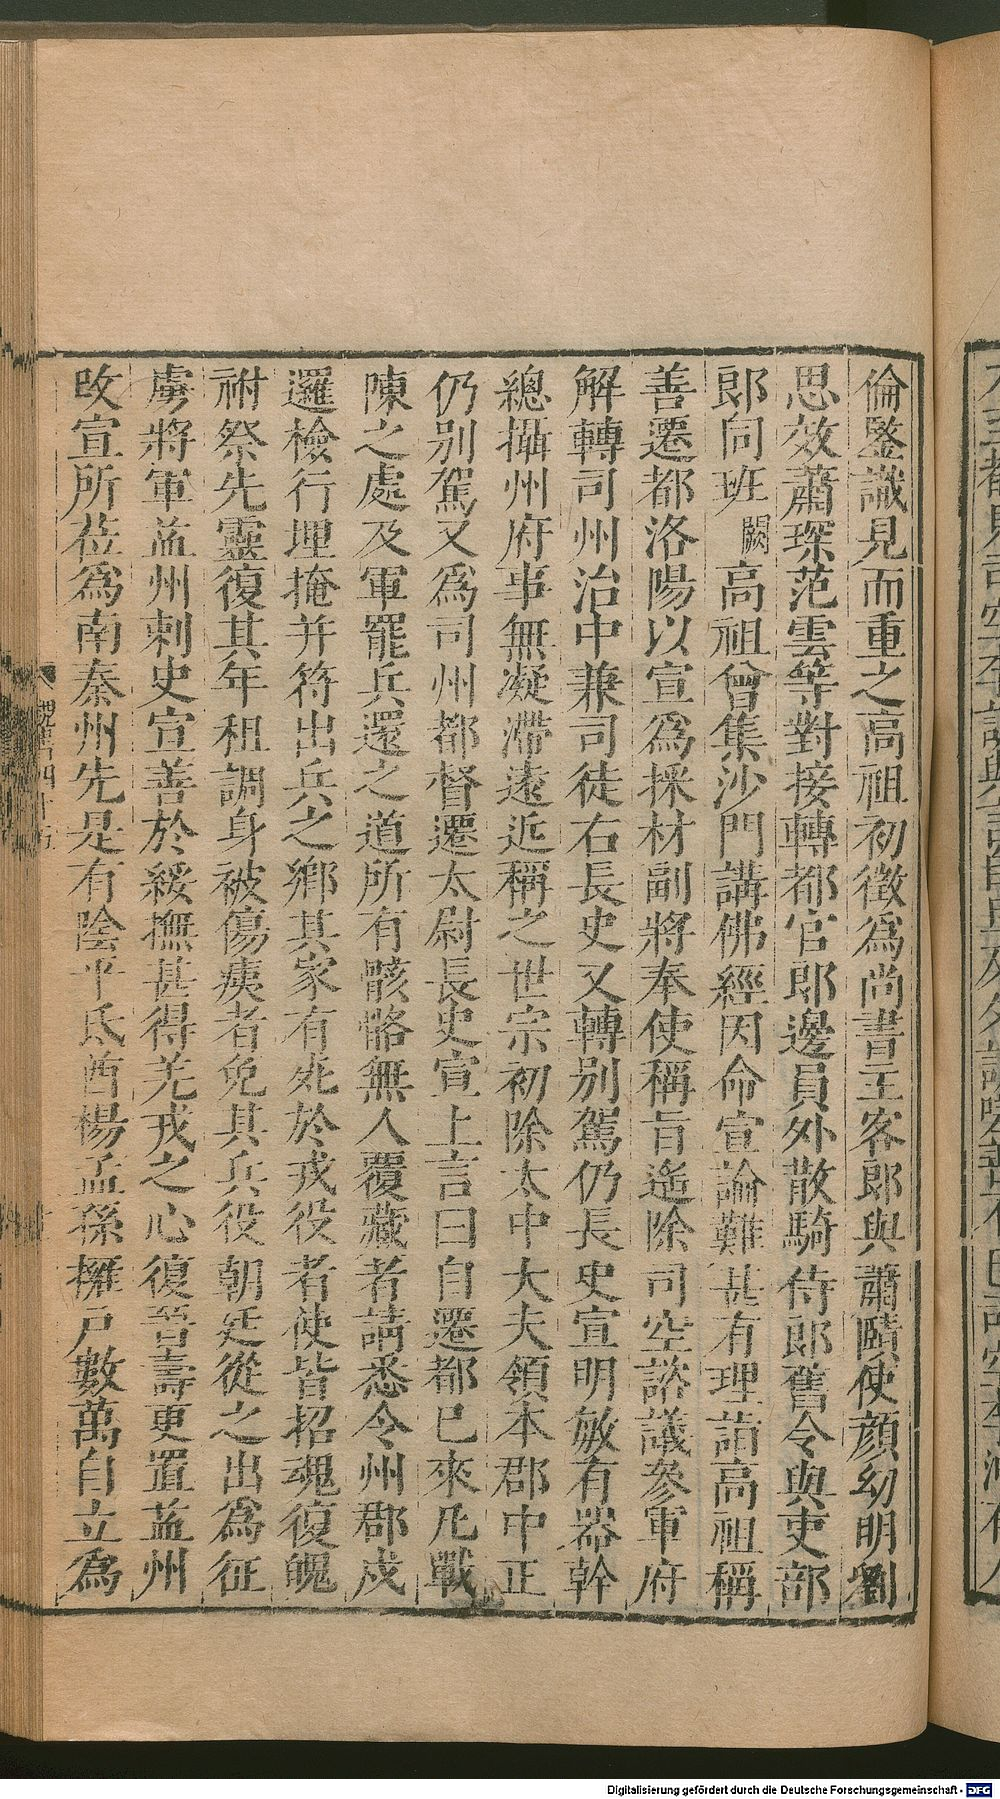 倫鑒識見而重之高祖初徵爲尚書主客郎與蕭賾使顔幼明劉
思效蕭琛范雲等對接轉都官郎邊員外散騎侍郎舊令與吏部
郎同班闕高祖曾集沙門講佛經因命宣論難甚有理詣高祖稱
善遷都洛陽以宣爲採材副將奉使稱旨遙除司空諮議參軍府
解轉司州治中兼司徒右長史又轉別駕仍長史宣明敏有器幹
總攝州府事無凝滯遠近稱之世宗初除太中大夫領本郡中正
仍別駕又爲司州都督遷太尉長史宣上言曰自遷都已來凡戰
陳之處及軍罷兵還之道所有骸骼無人覆藏者請悉令州郡戍
邏檢行埋掩并符出兵之鄉其家有死於戎役者使皆招魂復魄
祔祭先靈復其年租調身被傷痍者免其兵役朝廷從之出爲征
虜將軍益州刺史宣善於綏撫甚得羌戎之心復晉壽更置益州
改宣所莅爲南秦州先是有陰平氐酋楊孟孫擁戶數萬自立爲
魏書四十五
Digitalisierung gefördert durch die Deutsche Forschungsgemeinschaft - DFG